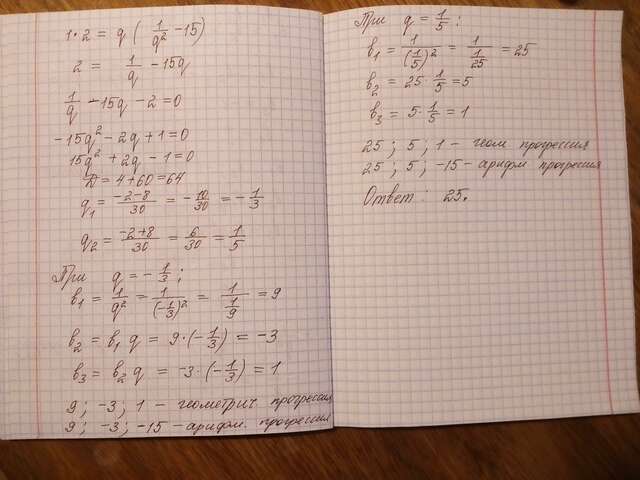 1·2 = q ( 1/q² - 15)
2 = 1/q - 15q
1/q - 15q - 2 = 0
-15q² - 2q + 1 = 0
15q² + 2q - 1 = 0
D = 4 + 60 = 64
q₁ = (-2-8)/30 = -10/30 = -1/3
q₂ = (-2+8)/30 = 6/30 = 1/5
При q = -1/3;
в₁ = 1/q² = 1/(-1/3)² = 1/(1/9) = 9
в₂ = в₁ q = 9·(-1/3) = -3
в₃ = в₂ q = -3·(-1/3) = 1
9; -3; 1 - геометрич прогрессия
9; -3; -15 - арифм. прогрессия
При q = 1/5:
в₁ = 1/(1/5)² = 1/(1/25) = 25
в₂ = 25·1/5 = 5
в₃ = 5·1/5 = 1
25; 5; 1 - геом прогрессия
25; 5; -15 - арифм прогрессия
Ответ: 25.